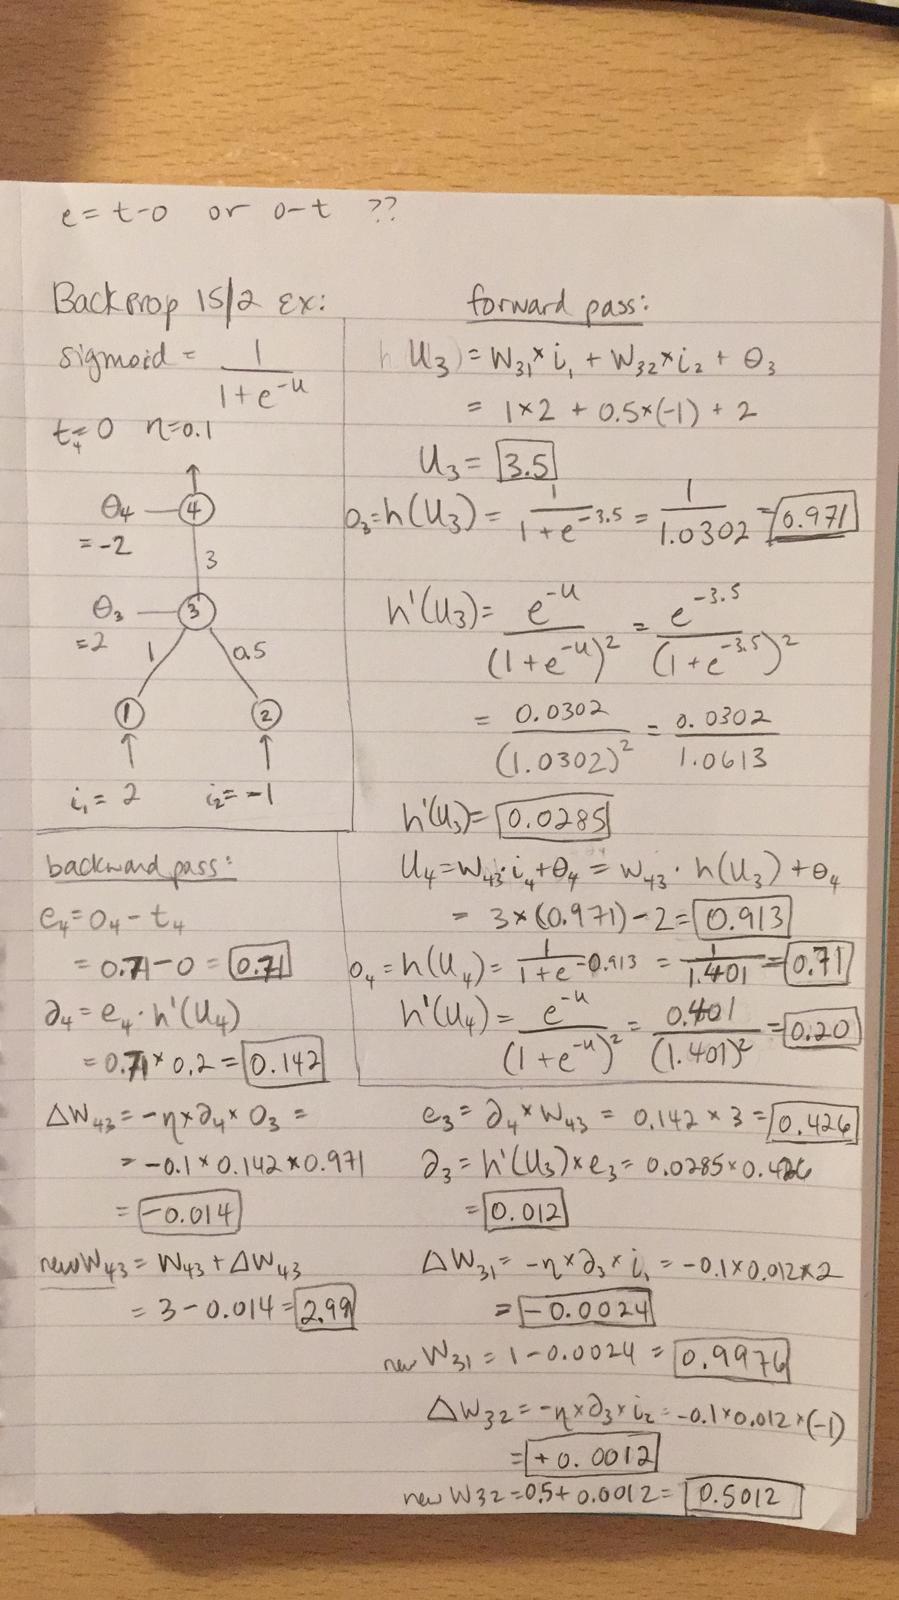 e = t-o or o-t ??
Backprop 15/2 Ex:
sigmoid = 1 / (1 + e^-u)
t₄=0 η=0.1
θ₄ = -2
4
3
θ₃ = 2
3
1 0.5
1 2
i₁ = 2 i₂ = -1
forward pass:
h(U₃) = W₃₁ × i₁ + W₃₂ × i₂ + θ₃
= 1×2 + 0.5×(-1) + 2
U₃ = 3.5
O₃ = h(U₃) = 1 / (1 + e^-3.5) = 1 / 1.0302 = 0.971
h'(U₃) = e^-u / (1 + e^-u)² = e^-3.5 / (1 + e^-3.5)²
= 0.0302 / (1.0302)² = 0.0302 / 1.0613
h'(U₃) = 0.0285
U₄ = W₄₃ · i₄ + θ₄ = W₄₃ · h(U₃) + θ₄
= 3×(0.971) - 2 = 0.913
O₄ = h(U₄) = 1 / (1 + e^-0.913) = 1 / 1.401 = 0.71
h'(U₄) = e^-u / (1 + e^-u)² = 0.401 / (1.401)² = 0.20
backward pass:
e₄ = O₄ - t₄
= 0.71 - 0 = 0.71
∂₄ = e₄ · h'(U₄)
= 0.71 × 0.2 = 0.142
ΔW₄₃ = -η × ∂₄ × O₃ =
= -0.1 × 0.142 × 0.971
= -0.014
new W₄₃ = W₄₃ + ΔW₄₃
= 3 - 0.014 = 2.99
e₃ = ∂₄ × W₄₃ = 0.142 × 3 = 0.426
∂₃ = h'(U₃) × e₃ = 0.0285 × 0.426
= 0.012
ΔW₃₁ = -η × ∂₃ × i₁ = -0.1 × 0.012 × 2
= -0.0024
new W₃₁ = 1 - 0.0024 = 0.9976
ΔW₃₂ = -η × ∂₃ × i₂ = -0.1 × 0.012 × (-1)
= +0.0012
new W₃₂ = 0.5 + 0.0012 = 0.5012